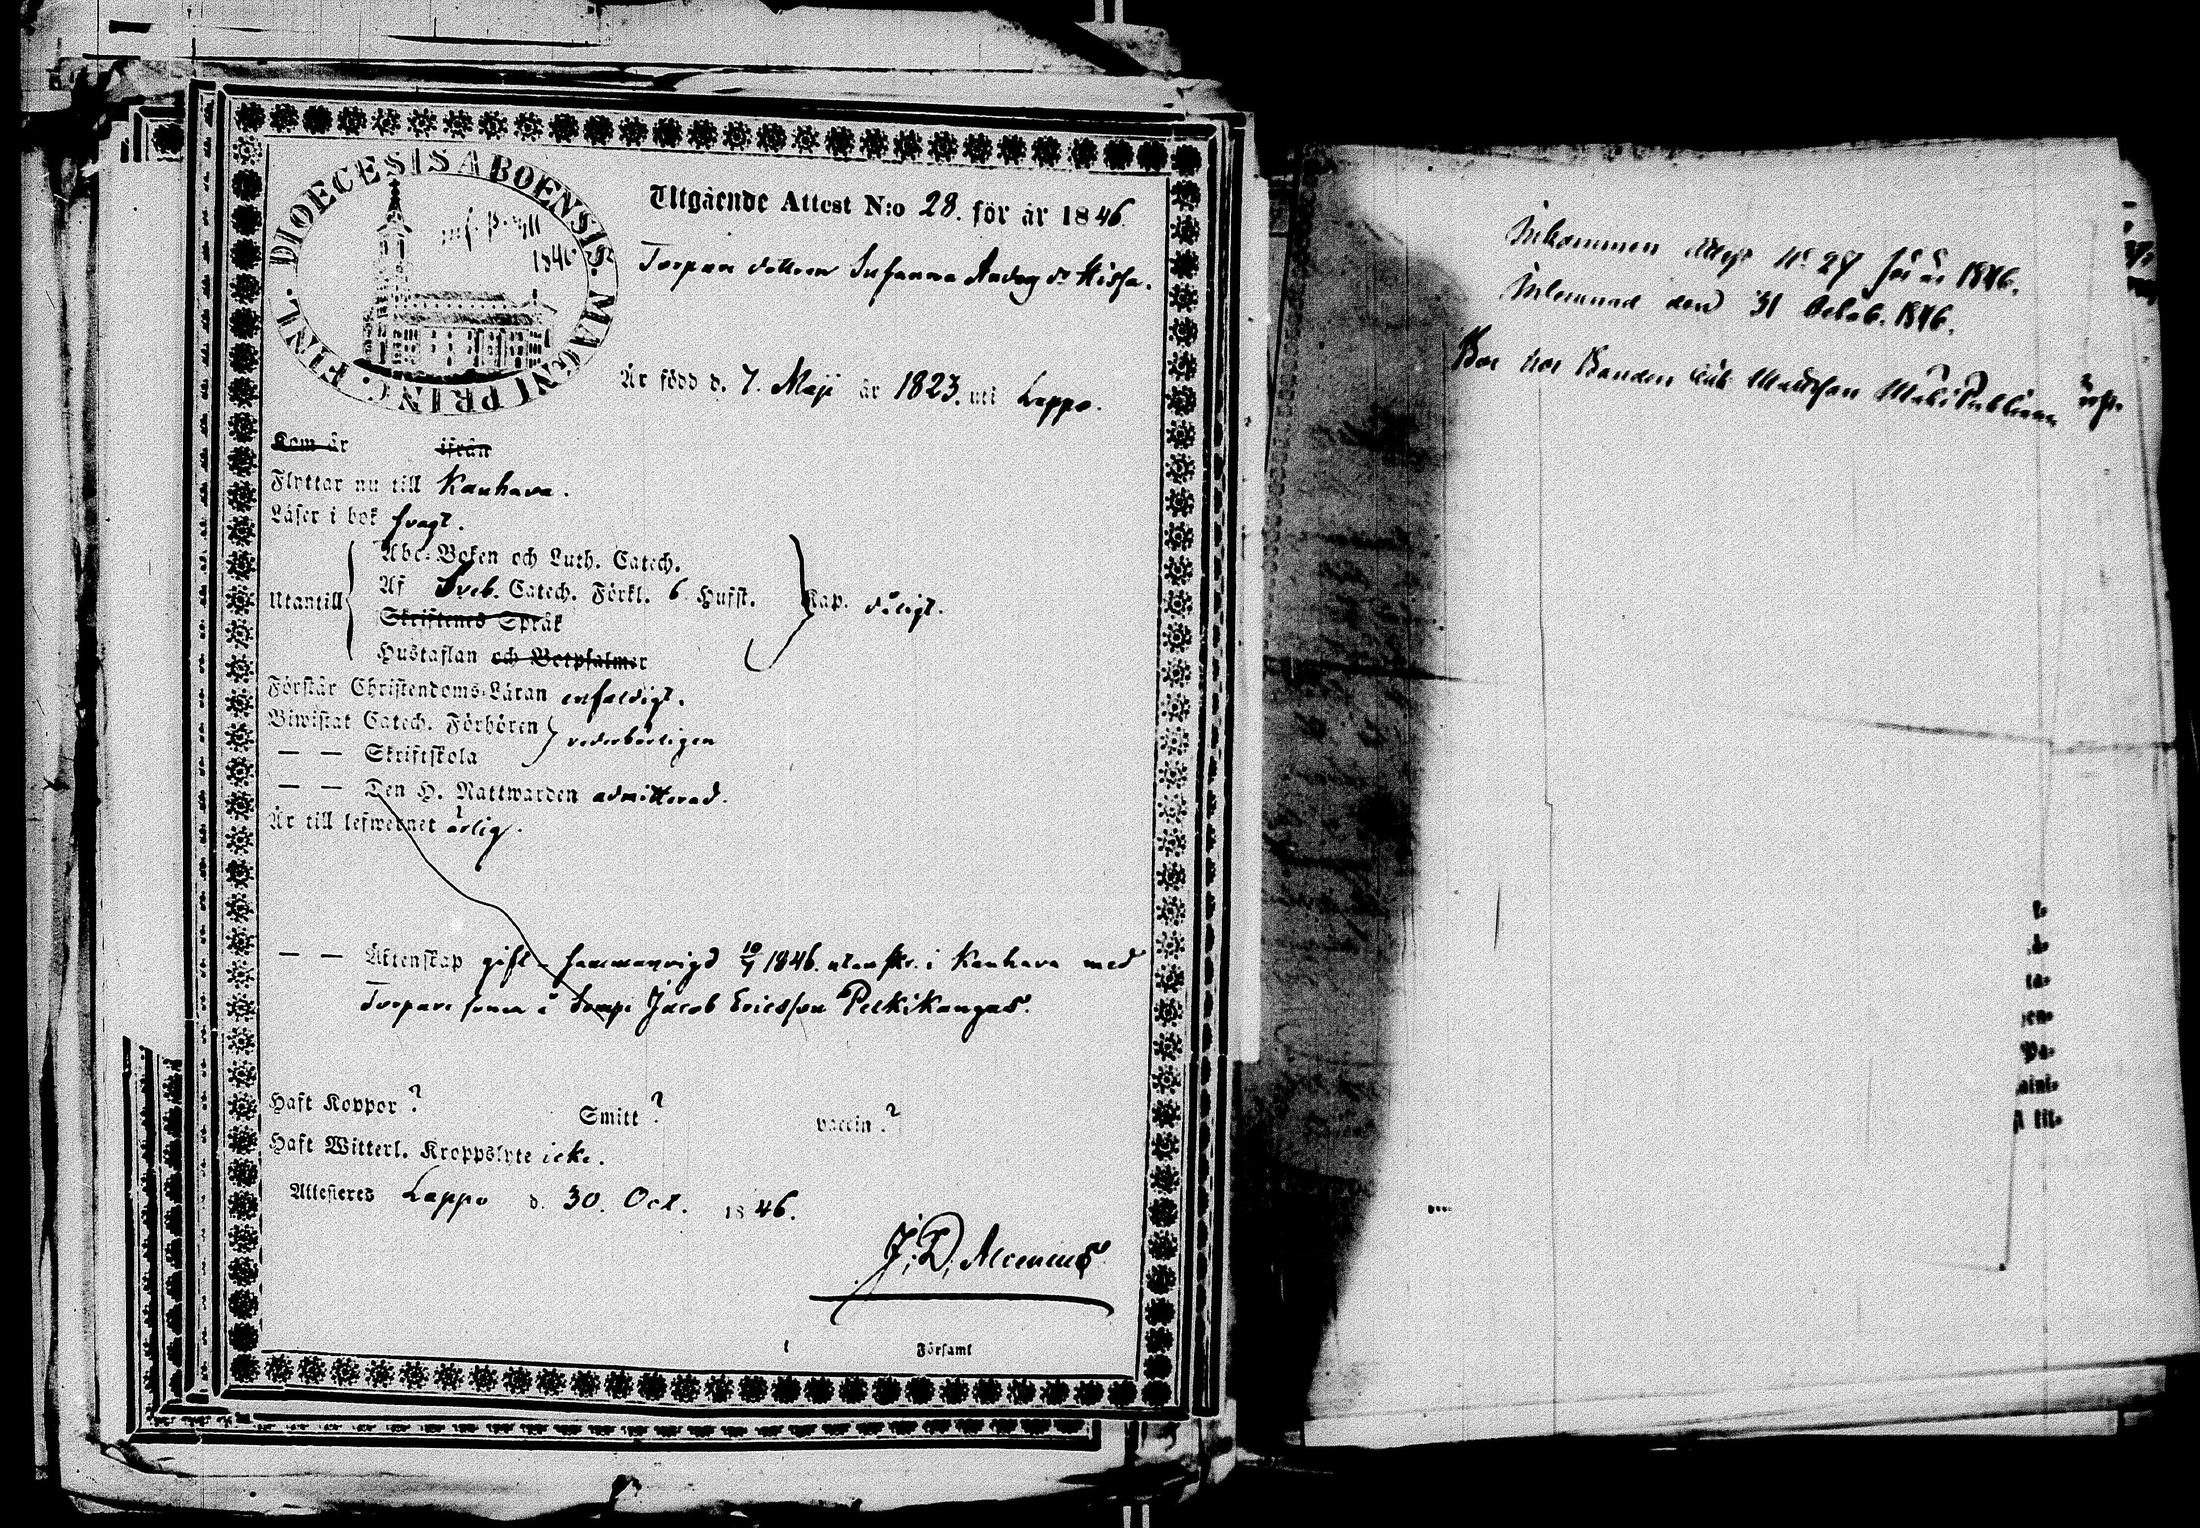 DIOECESIS ABOENSIS. MAGNI PRINC. FINL.
inf. p.
1846
Utgående Attest N:o 28. för år 1846.
Torpare dottern Susanna Andeg dr Hissa.
Är född d. 7. Maji år 1823. uti Lappo.
Kom år ifrån
Flyttar nu till Kauhava.
Läser i bok svagt.
Utantill
Abc-Boken och Luth. Catech.
Af Sveb. Catech. Förkl. 6 Hufst. Kap. dåligt.
Skriftenes Språk
Hustaflan och Botpsalmer
Förstår Christendoms-Läran enfaldigt.
Biwistat Catech. Förhören
— — Skriftskola
vederbörligen
— — Den H. Nattwarden admitterad.
Är till lefwernet ärlig.
— — Äktenskap gift – sammanvigd 10/7 1846. utan skr. i Kauhava med
Torpare sonen i Jacob Ericsson Pelkikangas.
Haft Koppor ? Smitt ? vaccin ?
Haft Witterl. Kroppslyte icke.
Attesteres Lappo d. 30. Oct. 1846.
J. D. Alcenius
Församl
Inkommen Attest No 27 för år 1846.
Inlemnad den 31 Octob. 1846.
Bor hos Bonden Mattsson